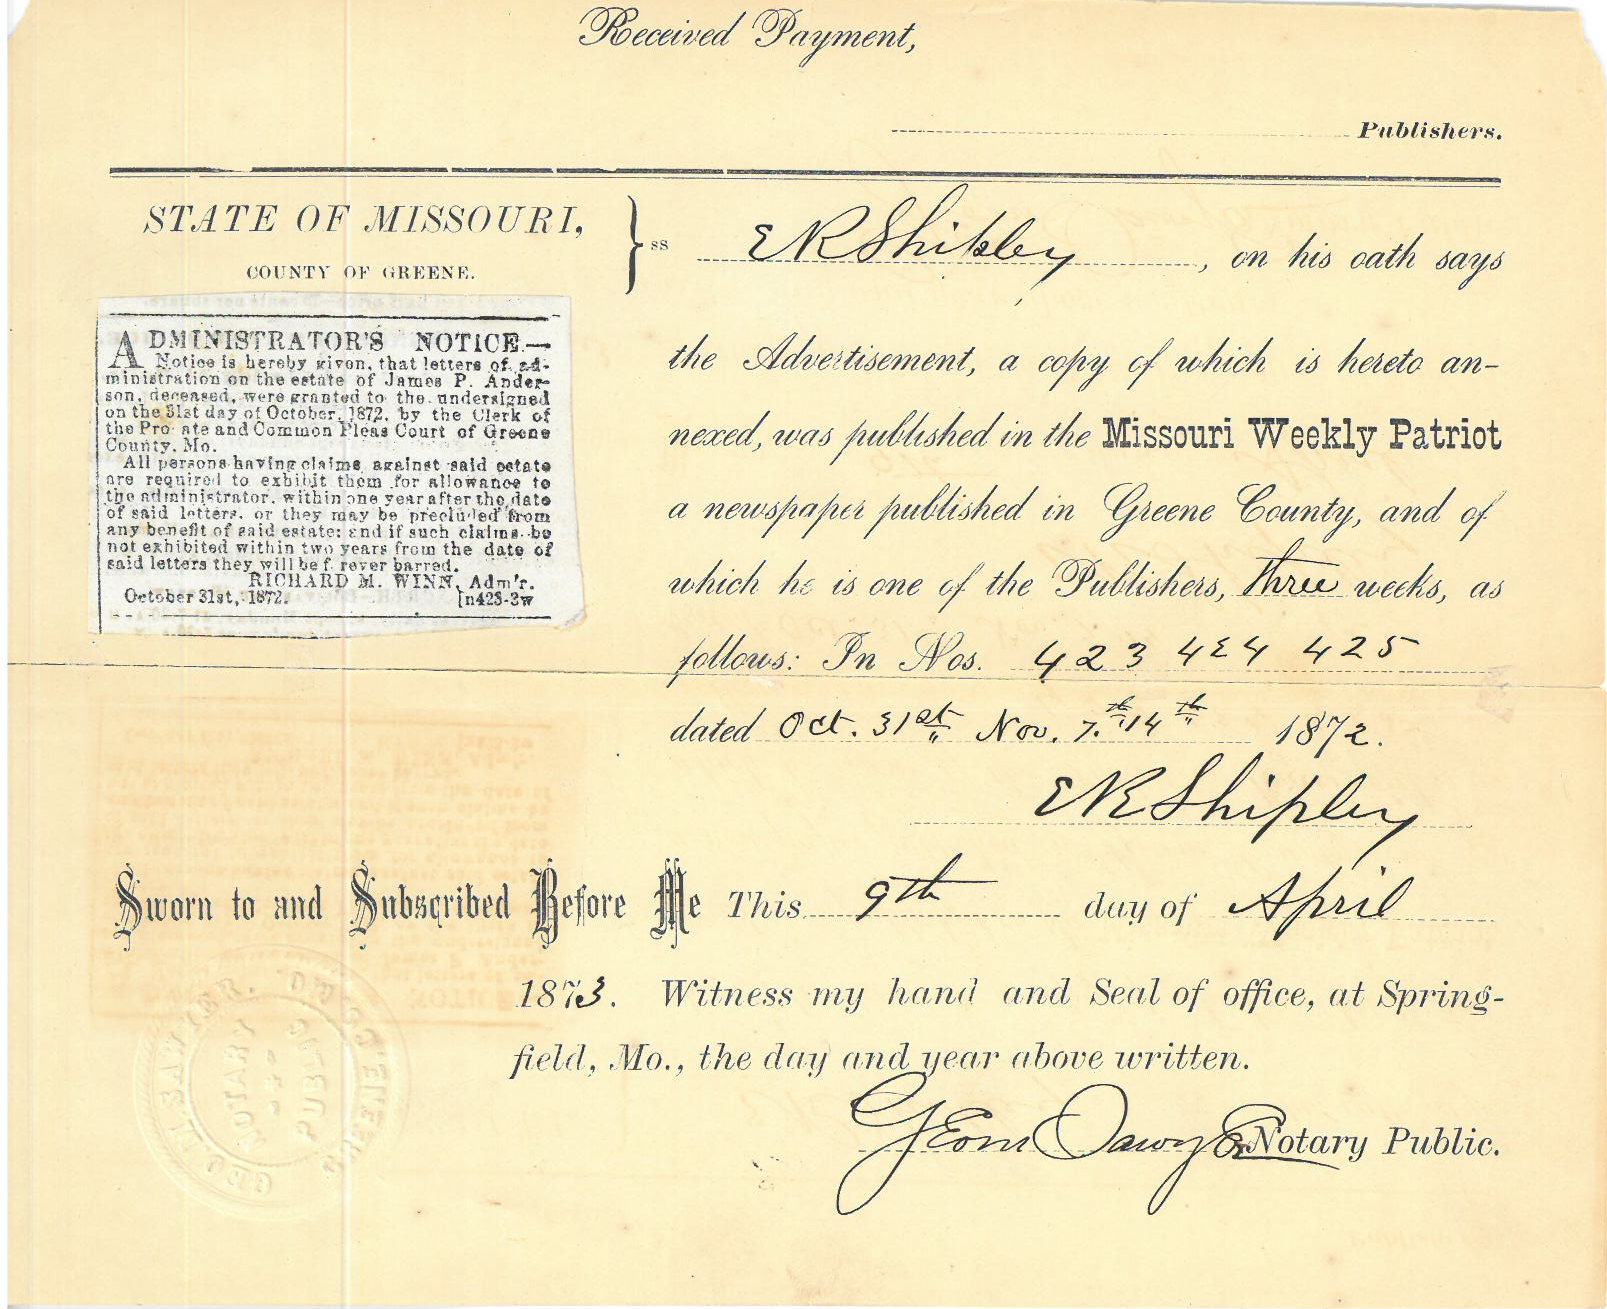 Received Payment,
Publishers.
STATE OF MISSOURI,
COUNTY OF GREENE.
} ss
E R Shipley, on his oath says
the Advertisement, a copy of which is hereto an-
nexed, was published in the Missouri Weekly Patriot
a newspaper published in Greene County, and of
which he is one of the Publishers, three weeks, as
follows: In Nos. 423 424 425
dated Oct. 31st, Nov. 7.th 14th 1872.
E R Shipley
ADMINISTRATOR'S NOTICE.—
Notice is hereby given, that letters of ad-
ministration on the estate of James P. Ander-
son, deceased, were granted to the undersigned
on the 31st day of October, 1872, by the Clerk of
the Pro ate and Common Pleas Court of Greene
County, Mo.
All persons having claims against said estate
are required to exhibit them for allowance to
the administrator, within one year after the date
of said letters, or they may be precluded from
any benefit of said estate; and if such claims be
not exhibited within two years from the date of
said letters they will be f rever barred.
RICHARD M. WINN, Adm'r.
October 31st, 1872. [n423-3w
Sworn to and Subscribed Before Me This 9th day of April
1873. Witness my hand and Seal of office, at Spring-
field, Mo., the day and year above written.
Notary Public.
NOTARY PUBLIC
GREENE CO.